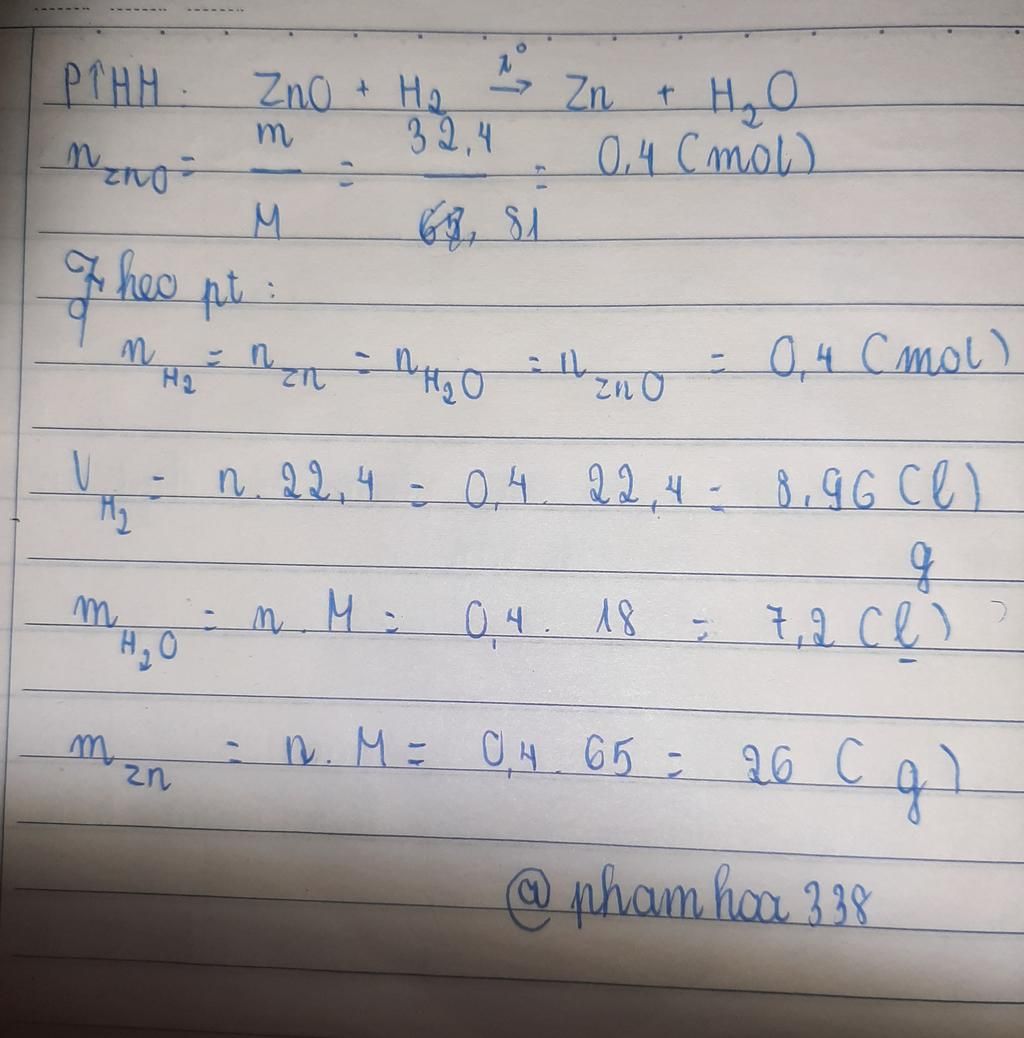 PTHH. ZnO + H₂ t° → Zn + H₂O
n ZnO = m/M = 32,4/81 = 0,4 (mol)
Theo pt :
n H₂ = n Zn = n H₂O = n ZnO = 0,4 (mol)
V H₂ = n. 22,4 = 0,4. 22,4 = 8,96 (l)
g
m H₂O = n. M = 0,4. 18 = 7,2 (l)
m Zn = n. M = 0,4. 65 = 26 (g)
@phamhoa338